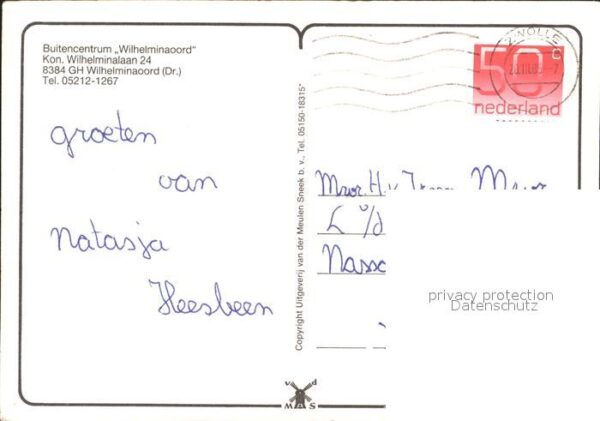 Buitencentrum „Wilhelminaoord"
Kon. Wilhelminalaan 24
8384 GH Wilhelminaoord (Dr.)
Tel. 05212-1267
groeten
van
Natasja
Heesbeen
Copyright Uitgeverij van der Meulen Sneek b. v., Tel. 05150-18315*
ZWOLLE
50 c
nederland
Mevr. H. v
Nassa
privacy protection
Datenschutz
v d
MAS